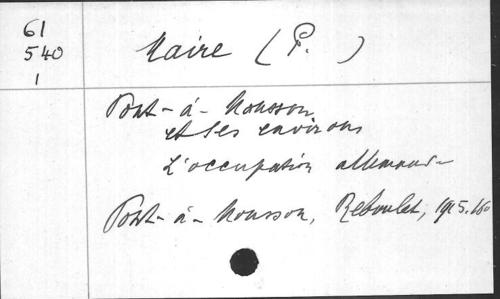 61
540
1
Maire (P. )
Pont-à-Mousson
et ses environs
L'occupation allemande
Pont-à-Mousson, Reboulet, 1915. 16°